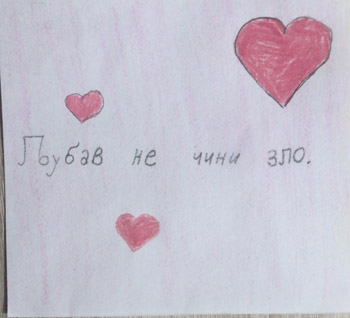 Љубав не чини зло.